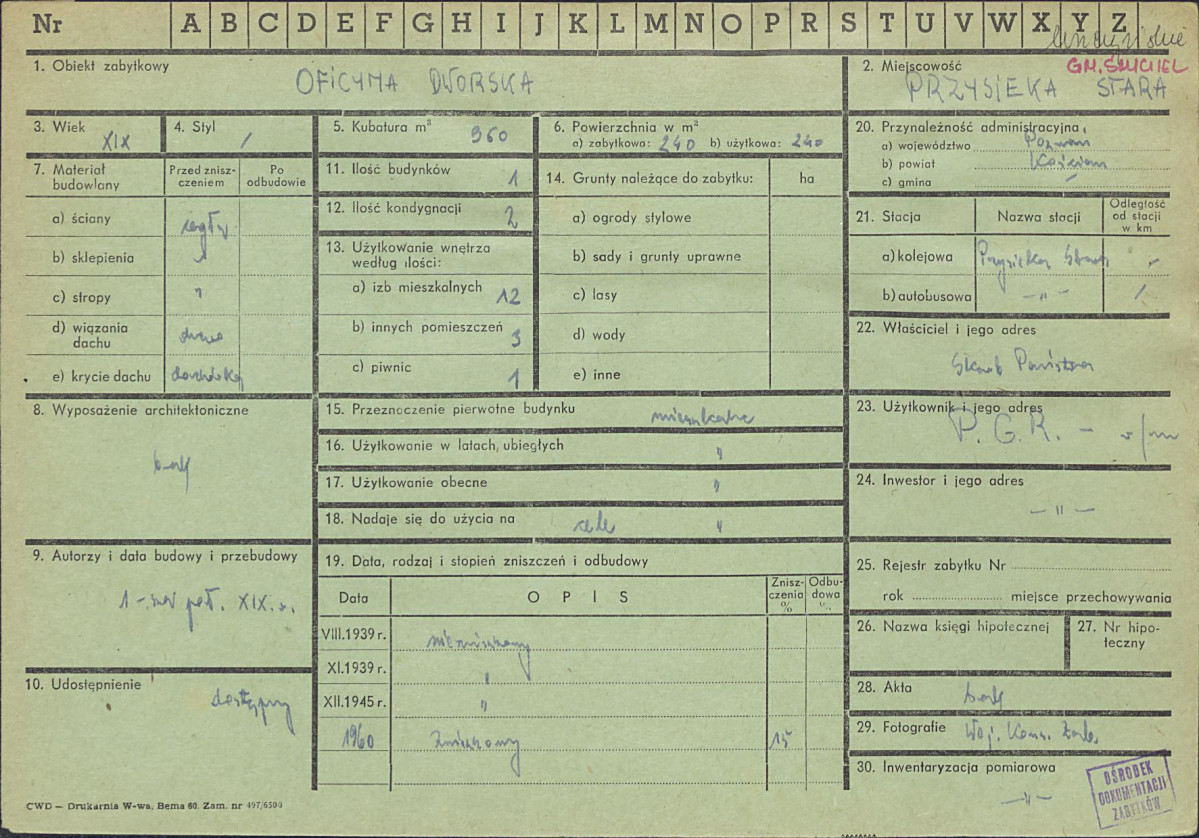 Nr A B C D E F G H I J K L M N O P R S T U V W X Y Z
1. Obiekt zabytkowy OFICYNA DWORSKA
2. Miejscowość GM. ŚMIGIEL
PRZYSIEKA STARA
3. Wiek XIX
4. Styl /
5. Kubatura m³ 960
6. Powierzchnia w m²
a) zabytkowa: 240 b) użytkowa: 240
7. Materiał budowlany
Przed zniszczeniem
Po odbudowie
a) ściany cegły
b) sklepienia
c) stropy "
d) wiązania dachu drewno
e) krycie dachu dachówka
8. Wyposażenie architektoniczne
brak
9. Autorzy i data budowy i przebudowy
1-sza poł. XIX w.
10. Udostępnienie
dostępny
11. Ilość budynków 1
12. Ilość kondygnacji 2
13. Użytkowanie wnętrza
według ilości:
a) izb mieszkalnych 12
b) innych pomieszczeń 3
c) piwnic 1
14. Grunty należące do zabytku: ha
a) ogrody stylowe
b) sady i grunty uprawne
c) lasy
d) wody
e) inne
15. Przeznoczenie pierwotne budynku mieszkalne
16. Użytkowanie w latach, ubiegłych "
17. Użytkowanie obecne "
18. Nadaje się do użycia na cele "
19. Data, rodzaj i stopień zniszczeń i odbudowy
Data OPIS Zniszczenia % Odbudowa %
VIII.1939 r. niezniszczony
XI.1939 r. "
XII.1945 r. "
1960 Zniszczony 15
20. Przynależność administracyjna,
a) województwo Poznań
b) powiat Kościan
c) gmina /
21. Stacja Nazwa stacji Odległość od stacji w km
a) kolejowa Przysieka Stara
b) autobusowa —"— /
22. Właściciel i jego adres
Skarb Państwa
23. Użytkownik i jego adres
P. G. R. –
24. Inwestor i jego adres
—"—
25. Rejestr zabytku Nr
rok miejsce przechowywania
26. Nazwa księgi hipotecznej
27. Nr hipoteczny
28. Akta brak
29. Fotografie Woj. Kons. Zab.
30. Inwentaryzacja pomiarowa
—"—
OŚRODEK
DOKUMENTACJI
ZABYTKÓW
CWD — Drukarnia W-wa, Bema 60. Zam. nr 497/6500